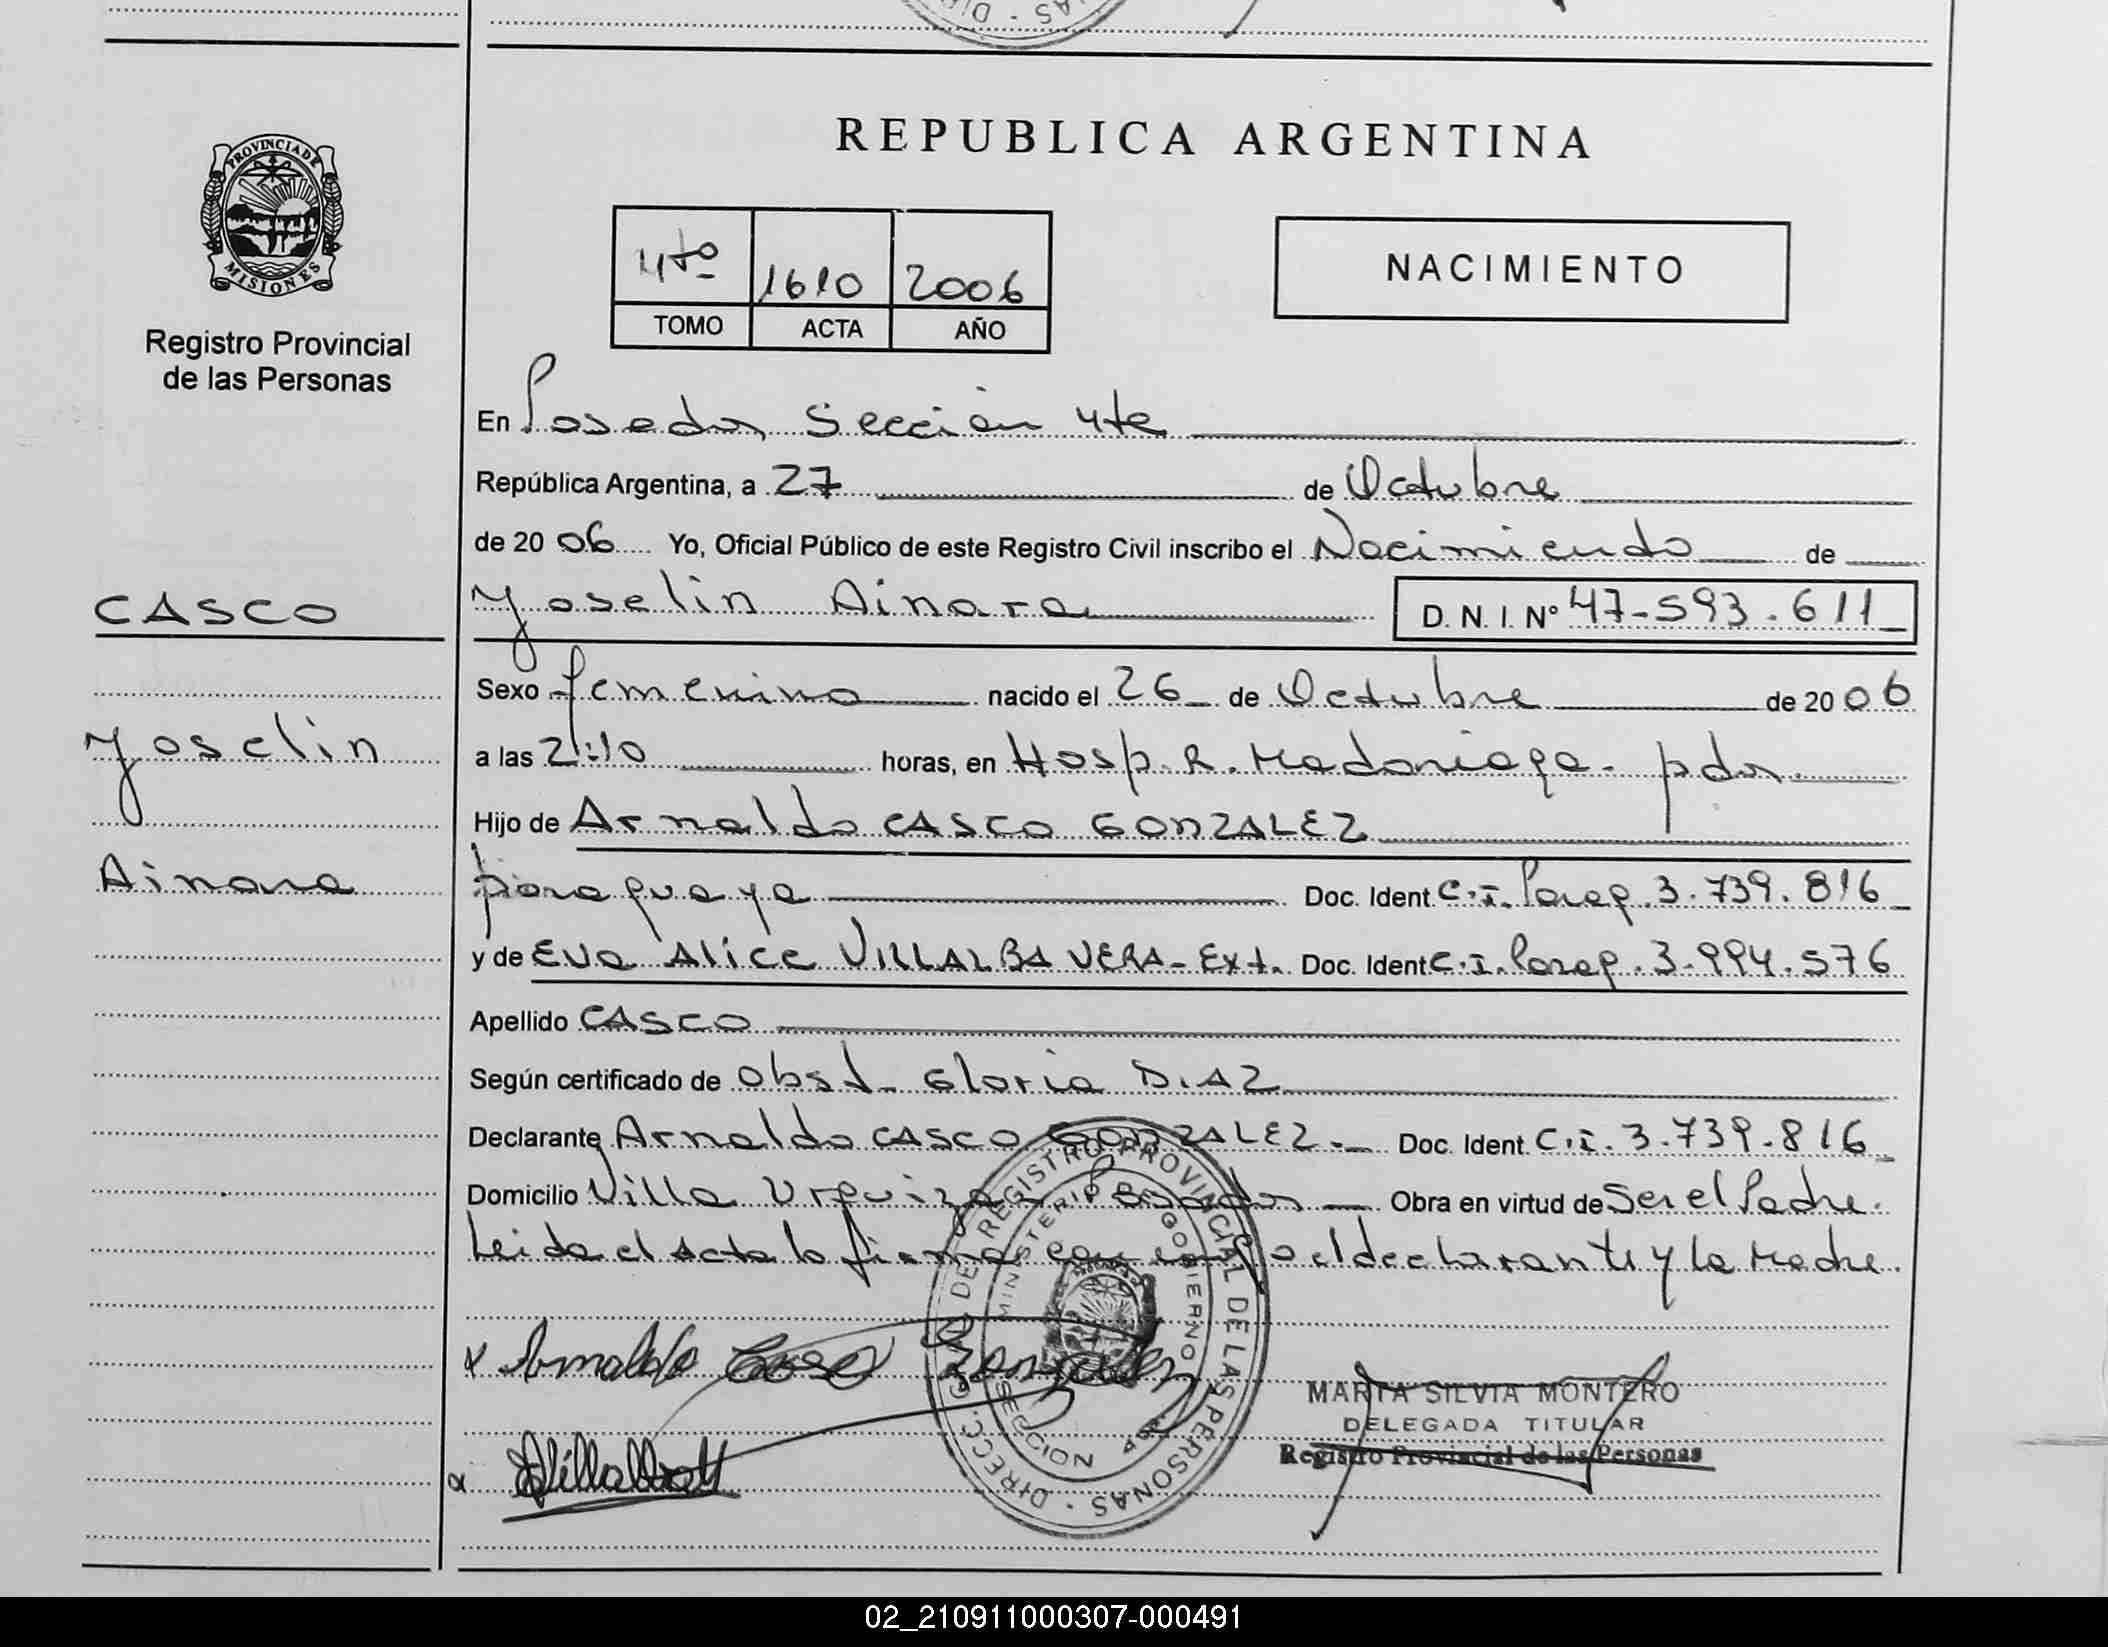 REPUBLICA ARGENTINA
PROVINCIA DE
MISIONES
Registro Provincial
de las Personas
4to 1610 2006
TOMO ACTA AÑO
NACIMIENTO
En Posadas Sección 4ta
República Argentina, a 27 de Octubre
de 2006 Yo, Oficial Público de este Registro Civil inscribo el Nacimiento de
CASCO
Yoselin
Ainara
Yoselin Ainara D. N. I. Nº 47-593.611
Sexo femenino nacido el 26 de Octubre de 2006
a las 21:10 horas, en Hosp. R. Madariaga - pdas.
Hijo de Arnaldo CASCO GONZALEZ
paraguaya Doc. Ident. C.I. Parag. 3.739.816
y de Eva Alice VILLALBA VERA - Ext. Doc. Ident C.I. Parag. 3.994.576
Apellido CASCO
Según certificado de Obst. Gloria DIAZ
Declarante Arnaldo CASCO GONZALEZ.- Doc. Ident. C.I. 3.739.816
Domicilio Villa Urquiza Posadas Obra en virtud de Ser el Padre.
Leida el Acta la firma el declarante y la Madre.
x Arnaldo Casco Gonzalez
DIRECC. G. DE REGISTRO PROVINCIAL DE LAS PERSONAS
MINISTERIO DE GOBIERNO
SECCION 4ta
MARTA SILVIA MONTERO
DELEGADA TITULAR
Registro Provincial de las Personas
02_210911000307-000491